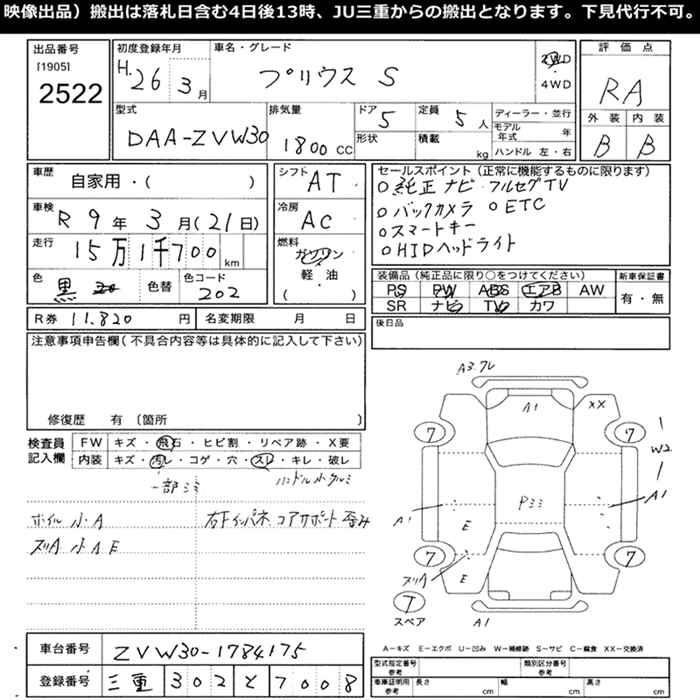 映像出品）搬出は落札日含む4日後13時、JU三重からの搬出となります。下見代行不可。
出品番号
[1905]
2522
初度登録年月
H.26 3月
車名・グレード
プリウス S
2WD
4WD
評価点
RA
外装 内装
B B
型式
DAA-ZVW30
排気量
1800 CC
ドア 5
形状
定員 5人
積載 kg
ディーラー・並行
モデル年式 年
ハンドル 左・右
車歴 自家用・( )
車検 R 9年 3月(21日)
走行 15万1千700 km
色 黒 色替 色コード 202
シフト AT
冷房 AC
燃料 ガソリン
軽・油
( )
セールスポイント（正常に機能するものに限ります）
○純正ナビ フルセグTV
○バックカメラ ○ETC
○スマートキー
○HIDヘッドライト
装備品（純正品に限り○をつけてください）
PS PW ABS エアB AW
SR ナビ TV カワ
新車保証書
有・無
R券 11.820 円
名変期限 月 日
後日品
注意事項申告欄（不具合内容等は具体的に記入して下さい）
修復歴 有〔箇所 〕
検査員記入欄
FW キズ・飛石・ヒビ割・リペア跡・X要
内装 キズ・汚レ・コゲ・穴・スレ・キレ・破レ
一部シミ ハンドル小クルミ
ホイル小A 右Fインパネ コアサポート歪み
スリA 小AE
A3.ワレ
A1
XX
7
7
W2
A1
A1
Pミミ
E
7
7
スリA
E
T
スペア
A1
A－キズ E－エクボ U－凹み W－補修跡 S－サビ C－腐食 XX－交換済
車台番号 ZVW30-1784175
登録番号 三重 302 と 7008
型式指定番号 参考
類別区分番号 参考
車庫証明用 参考 長さ cm 幅 cm 高さ cm